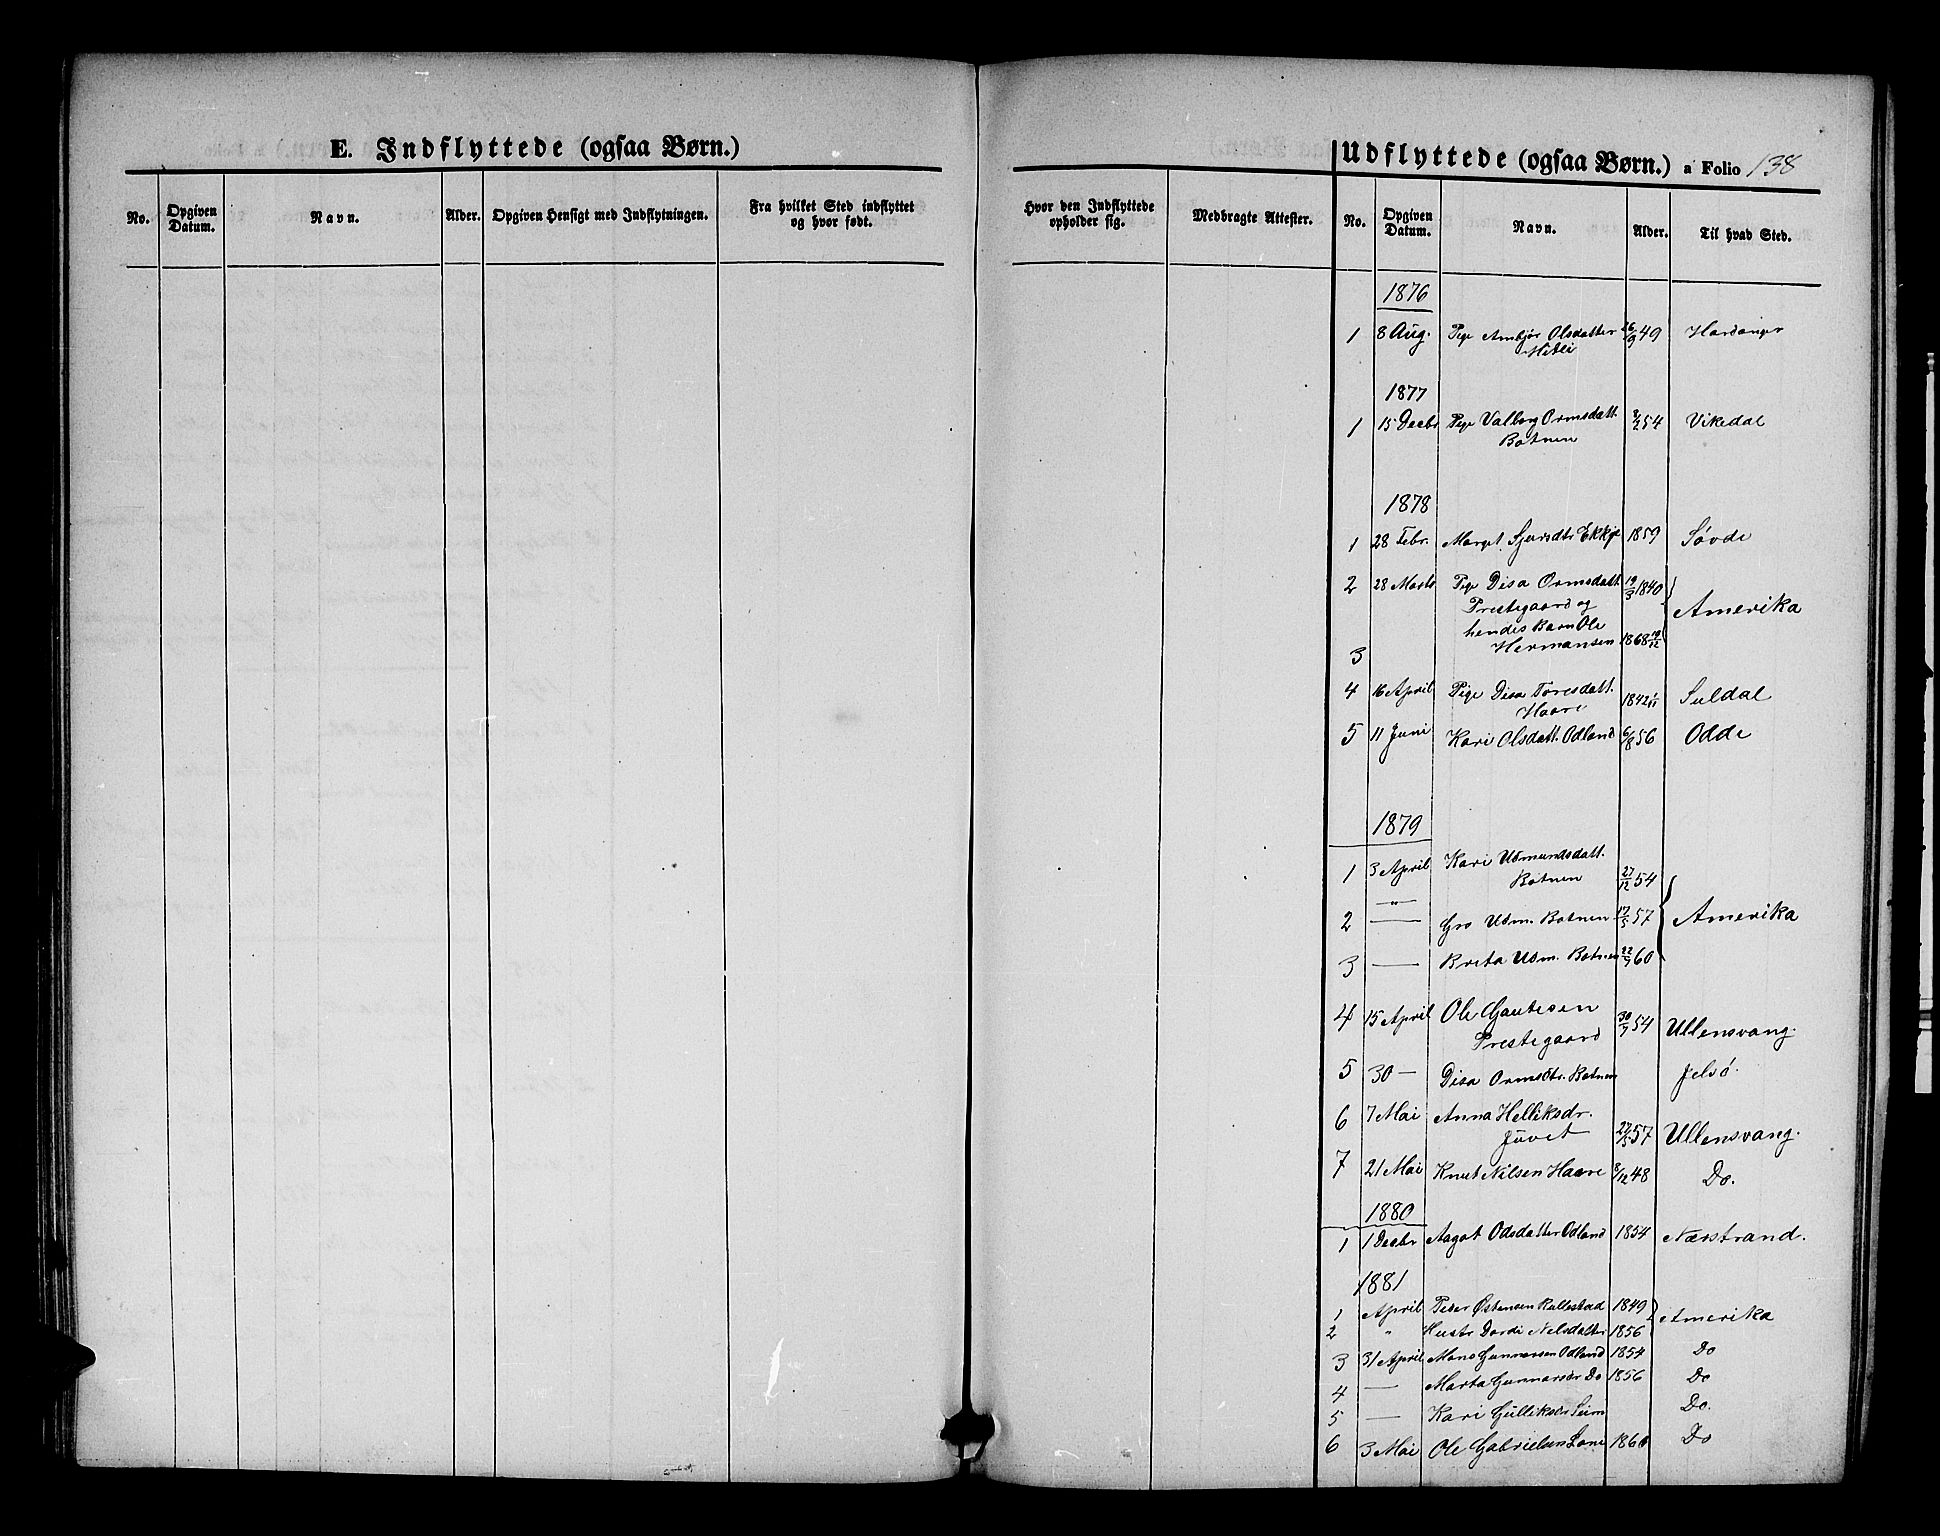 E. Indflyttede (ogsaa Børn.)
No. Opgiven Datum. Navn. Alder. Opgiven Hensigt med Indflytningen. Fra hvilket Sted indflyttet og hvor født.
Udflyttede (ogsaa Børn.) a Folio 138
Hvor den Indflyttede opholder sig. Medbragte Attester. No. Opgiven Datum. Navn. Alder. Til hvad Sted.
1876
1 8 Aug. Pige Ambjør Olsdatter 26/9 49 Hardanger
1877
1 15 Decbr Pige Valborg Ormsdatt. 8/2 54 Vikedal
Botnen
1878
1 28 Febr. Marget. Sjursdtr Ekkje 1859 Søvde
2 28 Marts Pige Disa Ormsdatt. 19/3 1840
Prestegaard og Amerika
hendes Barn Ole
3 Hermansen 1868 19/12
4 16 April Pige Disa Toresdatt. 1842 1/11 Suldal
Haare
5 11 Juni Kari Olsdatt. Odland 6/8 56 Odde
1879
1 3 April Kari Udmundsdatt.
Botnen 27/12 54
2 — " — Gro Udm. Botnen 17/5 57 Amerika
3 — Breta Udm. Botnen 22/7 60
4 15 April Ole Gautesen
Prestegaard 30/7 54 Ullensvang.
5 30 — Disa Ormsdtr. Botnen Jelsö.
6 7 Mai Anna Helliksdr.
Juvet 27/5 57 Ullensvang.
7 21 Mai Knut Nilsen Haare 8/12 48 Do.
1880
1 1 Decbr Aagot Odsdatter Odland 1854 Nærstrand.
1881
1 April Peder Østensen Rullestad 1849 Amerika
2 " Hustr Dordi Nelsdatter 1856
3 31 April Mons Gunnarsen Odland 1854 Do
4 — Marta Gunnarsdr Do 1856 Do
5 — Kari Gulliksdr Seim Do.
6 3 Mai Ole Gabrielsen 1860 Do